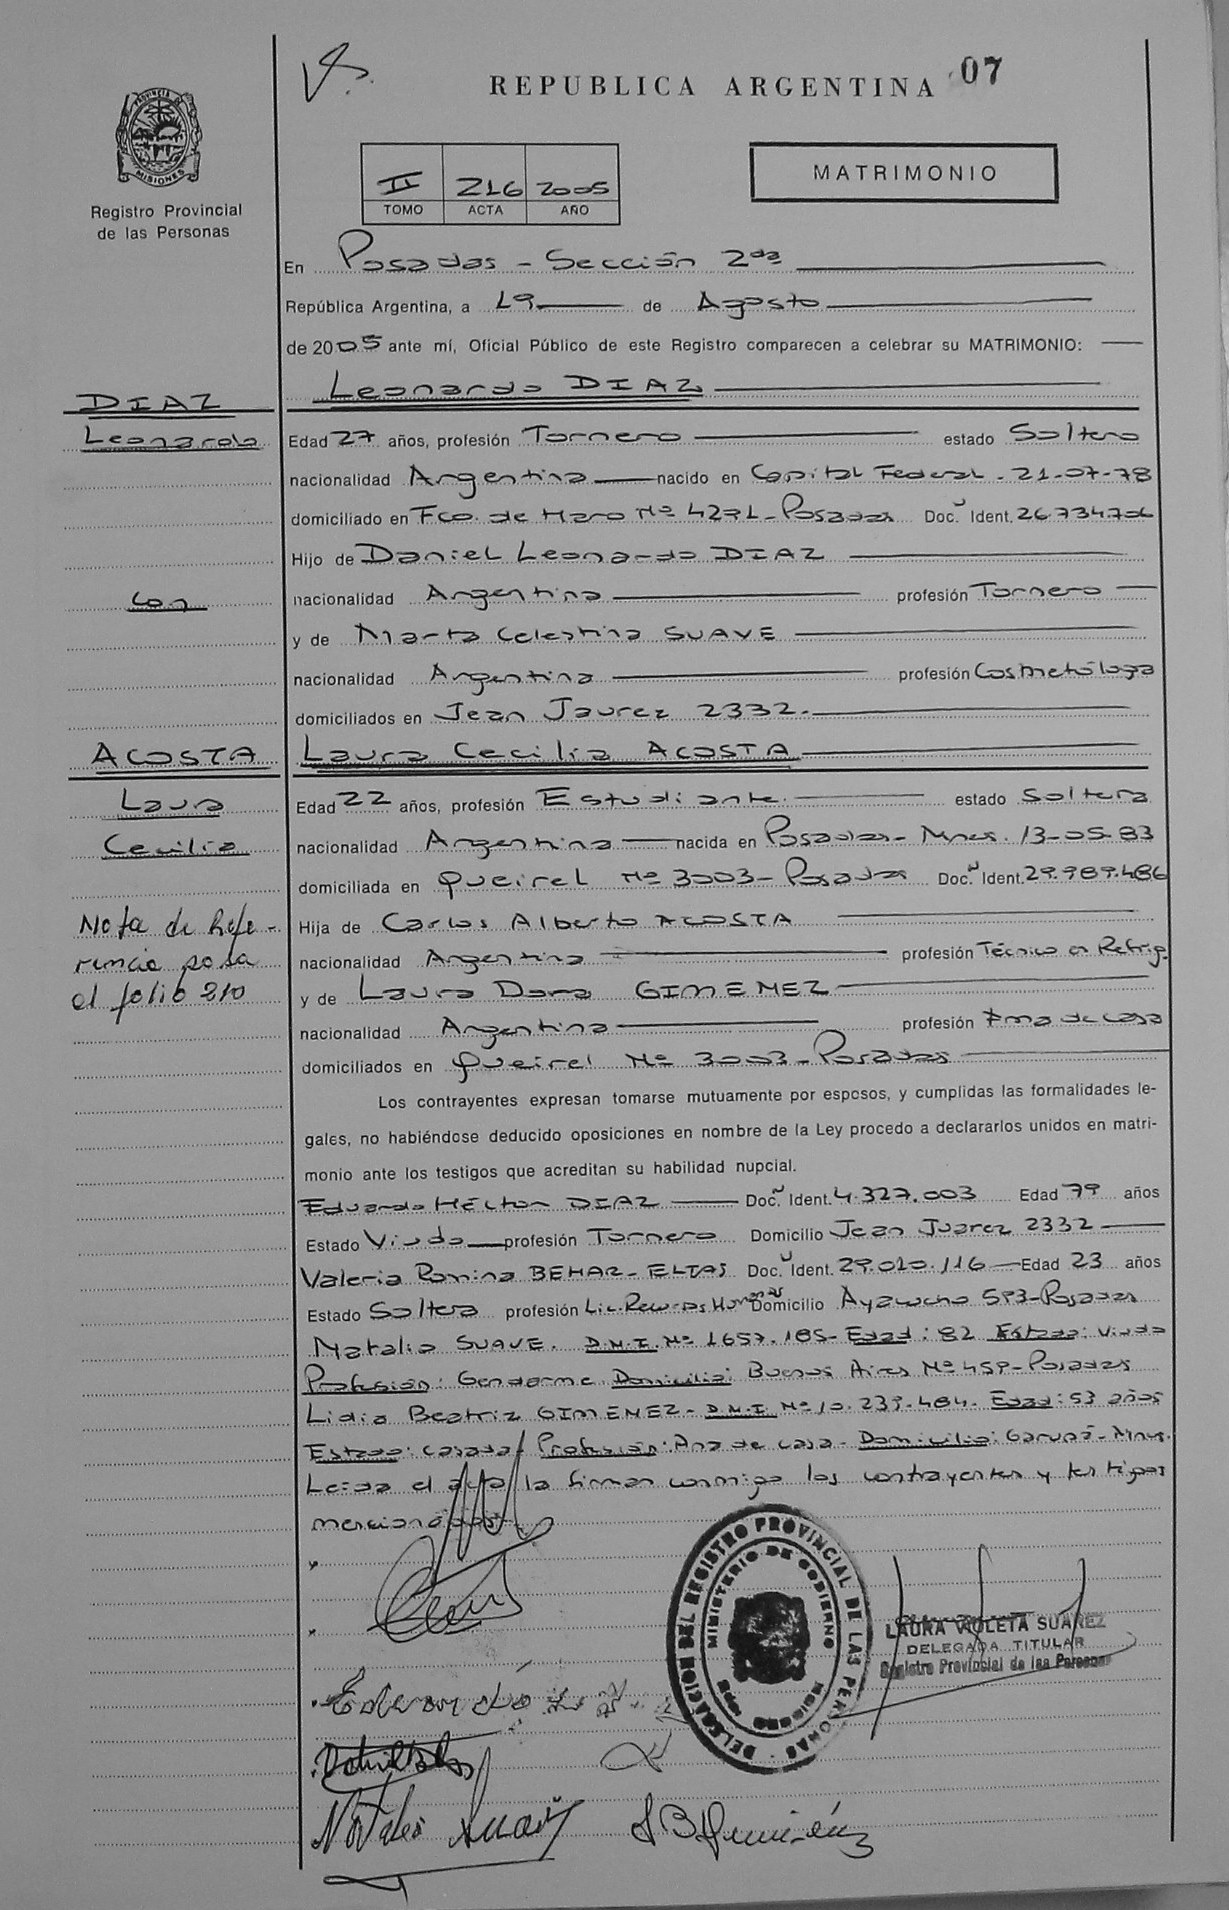 REPUBLICA ARGENTINA 07
PROVINCIA DE
MISIONES
Registro Provincial
de las Personas
II 216 2005
TOMO ACTA AÑO
MATRIMONIO
En Posadas - Sección 2da
República Argentina, a 19 de Agosto
de 2005 ante mí, Oficial Público de este Registro comparecen a celebrar su MATRIMONIO:
DIAZ
Leonardo DIAZ
Leonardo
Edad 27 años, profesión Tornero estado Soltero
nacionalidad Argentina nacido en Capital Federal - 21-07-78
domiciliado en Fco. de Haro Nº 4291 - Posadas Doc. Ident. 26.734.706
Hijo de Daniel Leonardo DIAZ
con
nacionalidad Argentina profesión Tornero
y de Marta Celestina SUAVE
nacionalidad Argentina profesión Cosmetóloga
domiciliados en Jean Jaurez 2332.
ACOSTA
Laura Cecilia ACOSTA
Laura
Edad 22 años, profesión Estudiante. estado Soltera
Cecilia
nacionalidad Argentina nacida en Posadas - Mnes. 13-05-83
domiciliada en Queirel Nº 3003 - Posadas Doc. Ident. 29.989.486
Nota de Refe-
rencia pasa
el folio 210
Hija de Carlos Alberto ACOSTA
nacionalidad Argentina profesión Técnico en Refrig.
y de Laura Dora GIMENEZ
nacionalidad Argentina profesión Ama de casa
domiciliados en Queirel Nº 3003 - Posadas
Los contrayentes expresan tomarse mutuamente por esposos, y cumplidas las formalidades le-
gales, no habiéndose deducido oposiciones en nombre de la Ley procedo a declararlos unidos en matri-
monio ante los testigos que acreditan su habilidad nupcial.
Eduardo Héctor DIAZ Doc. Ident. 4.327.003 Edad 79 años
Estado Viudo profesión Tornero Domicilio Jean Juarez 2332
Valeria Romina BEHAR - ELIAS Doc. Ident. 29.020.116 Edad 23 años
Estado Soltera profesión Lic. Recursos Humanos Domicilio Ayacucho 593 - Posadas
Natalio SUAVE. D.N.I. Nº 1657.185 - Edad: 82 Estado: Viudo
Profesión: Gendarme Domicilio: Buenos Aires Nº 459 - Posadas
Lidia Beatriz GIMENEZ - D.N.I Nº 10.239.484. Edad: 53 años
Estado: casada - Profesión: Ama de casa - Domicilio: Garupá - Mnes.
Leída el acta la firman conmigo los contrayentes y testigos
mencionados.
DELEGACION DEL REGISTRO PROVINCIAL DE LAS PERSONAS
MINISTERIO DE GOBIERNO
LAURA VIOLETA SUAREZ
DELEGADA TITULAR
Registro Provincial de las Personas